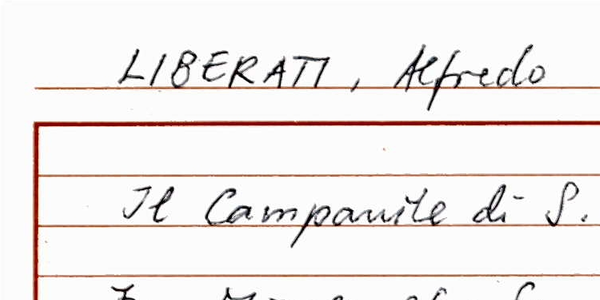 LIBERATI, Alfredo
Il Campanile di S.